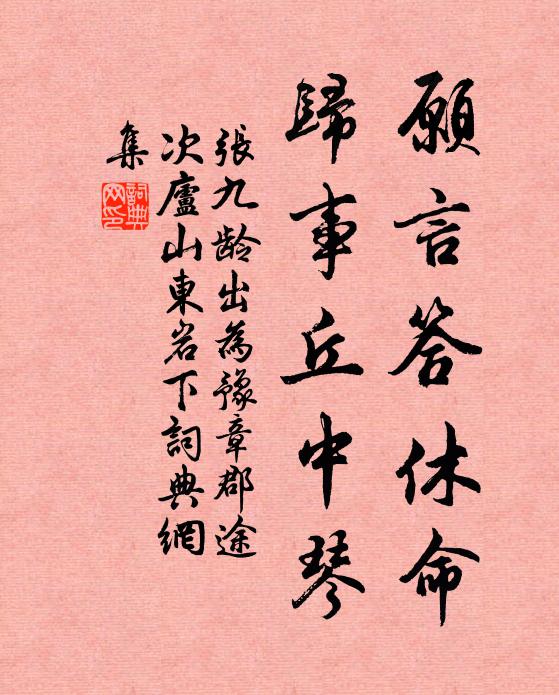 願言答休命
歸事丘中琴
張九齡出為豫章郡途
次廬山東岩下詞典網
集
詞典
网印